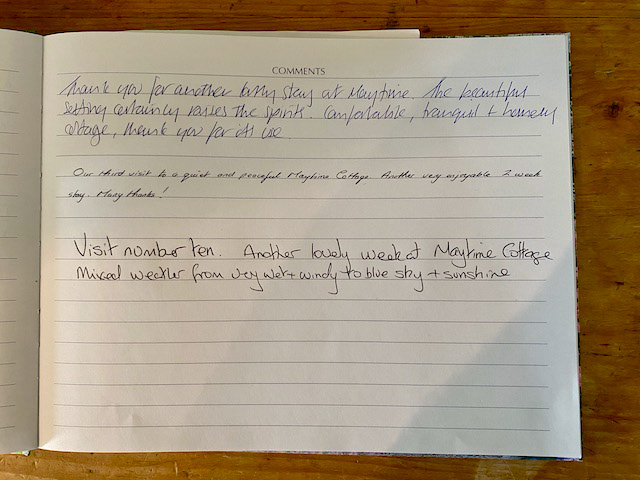 COMMENTS
Thank you for another lovely stay at Maytime. The beautiful
setting certainly raises the spirits. Comfortable, tranquil + homely
cottage, thank you for its use
Our third visit to a quiet and peaceful Maytime Cottage. Another very enjoyable 2 week
stay. Many thanks!
Visit number ten. Another lovely week at Maytime Cottage
Mixed weather from very wet + windy to blue sky + sunshine